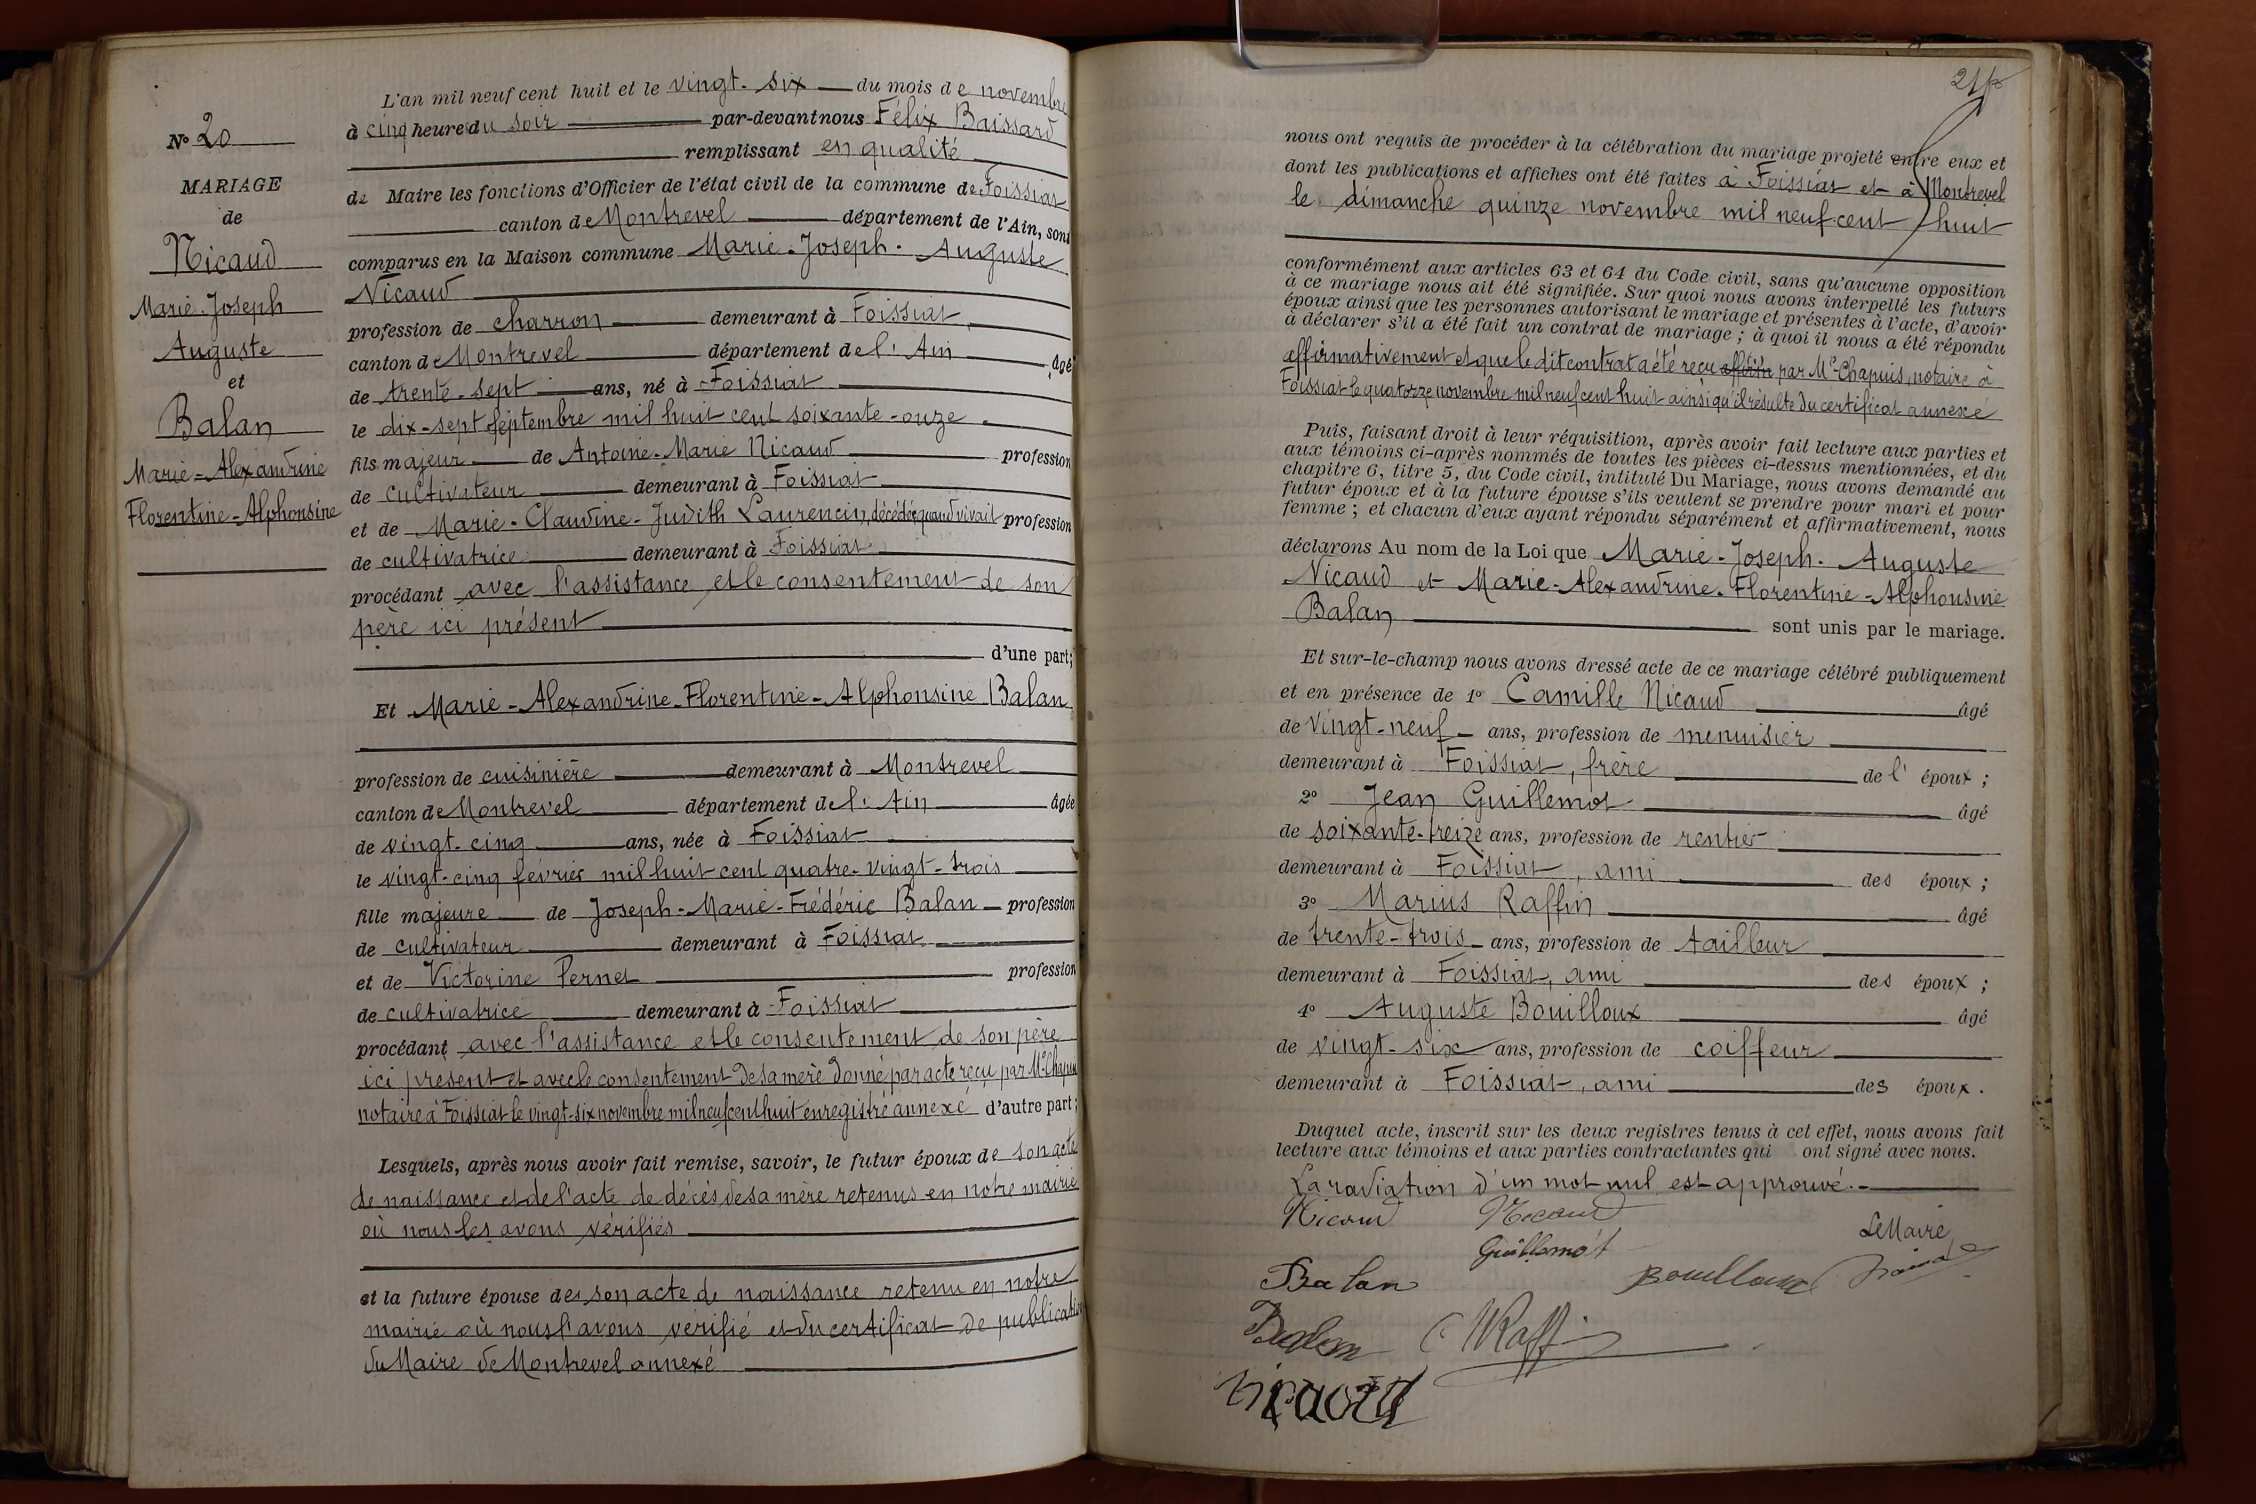 N° 20
MARIAGE
de
Nicaud
Marie-Joseph
Auguste
et
Balan
Marie-Alexandrine
Florentine-Alphonsine
L'an mil neuf cent huit et le vingt-six du mois de novembre
à cinq heure du soir par-devant nous Félix Baissard
remplissant en qualité
de Maire les fonctions d'Officier de l'état civil de la commune de Foissiat
canton de Montrevel département de l'Ain, sont
comparus en la Maison commune Marie-Joseph-Auguste
Nicaud
profession de charron demeurant à Foissiat,
canton de Montrevel département de l'Ain âgé
de trente-sept ans, né à Foissiat
le dix-sept septembre mil huit cent soixante-onze
fils majeur de Antoine-Marie Nicaud profession
de cultivateur demeurant à Foissiat
et de Marie-Claudine-Judith Laurencin, décédée, quand vivait profession
de cultivatrice demeurant à Foissiat
procédant avec l'assistance et le consentement de son
père ici présent
d'une part;
Et Marie-Alexandrine-Florentine-Alphonsine Balan
profession de cuisinière demeurant à Montrevel
canton de Montrevel département de l'Ain âgée
de vingt-cinq ans, née à Foissiat
le vingt-cinq février mil huit cent quatre-vingt-trois
fille majeure de Joseph-Marie-Frédéric Balan profession
de cultivateur demeurant à Foissiat
et de Victorine Pernet profession
de cultivatrice demeurant à Foissiat
procédant avec l'assistance et le consentement de son père
ici présent et avec le consentement de sa mère donné par acte reçu par Me Chapuis
notaire à Foissiat le vingt-six novembre mil neuf cent huit enregistré annexé d'autre part;
Lesquels, après nous avoir fait remise, savoir, le futur époux de son acte
de naissance et de l'acte de décès de sa mère retenus en notre mairie
où nous les avons vérifiés
et la future épouse de son acte de naissance retenu en notre
mairie où nous l'avons vérifié et du certificat de publication
du Maire de Montrevel annexé
nous ont requis de procéder à la célébration du mariage projeté entre eux et
dont les publications et affiches ont été faites à Foissiat et à Montrevel
le dimanche quinze novembre mil neuf cent huit
conformément aux articles 63 et 64 du Code civil, sans qu'aucune opposition
à ce mariage nous ait été signifiée. Sur quoi nous avons interpellé les futurs
époux ainsi que les personnes autorisant le mariage et présentes à l'acte, d'avoir
à déclarer s'il a été fait un contrat de mariage ; à quoi il nous a été répondu
affirmativement et que le dit contrat a été reçu par Me Chapuis, notaire à
Foissiat le quatorze novembre mil neuf cent huit ainsi qu'il résulte du certificat annexé
Puis, faisant droit à leur réquisition, après avoir fait lecture aux parties et
aux témoins ci-après nommés de toutes les pièces ci-dessus mentionnées, et du
chapitre 6, titre 5, du Code civil, intitulé Du Mariage, nous avons demandé au
futur époux et à la future épouse s'ils veulent se prendre pour mari et pour
femme ; et chacun d'eux ayant répondu séparément et affirmativement, nous
déclarons Au nom de la Loi que Marie-Joseph-Auguste
Nicaud et Marie-Alexandrine-Florentine-Alphonsine
Balan sont unis par le mariage.
Et sur-le-champ nous avons dressé acte de ce mariage célébré publiquement
et en présence de 1° Camille Nicaud âgé
de vingt-neuf ans, profession de menuisier
demeurant à Foissiat, frère de l'époux ;
2° Jean Guillemot âgé
de soixante-treize ans, profession de rentier
demeurant à Foissiat, ami des époux ;
3° Marius Raffin âgé
de trente-trois ans, profession de tailleur
demeurant à Foissiat, ami des époux ;
4° Auguste Bouilloux âgé
de vingt-six ans, profession de coiffeur
demeurant à Foissiat, ami des époux.
Duquel acte, inscrit sur les deux registres tenus à cet effet, nous avons fait
lecture aux témoins et aux parties contractantes qui ont signé avec nous.
La radiation d'un mot nul est approuvé.
Nicaud Nicaud
Le Maire
Guillemot
Balan Bouilloux
Balan Raffin
Nicaud